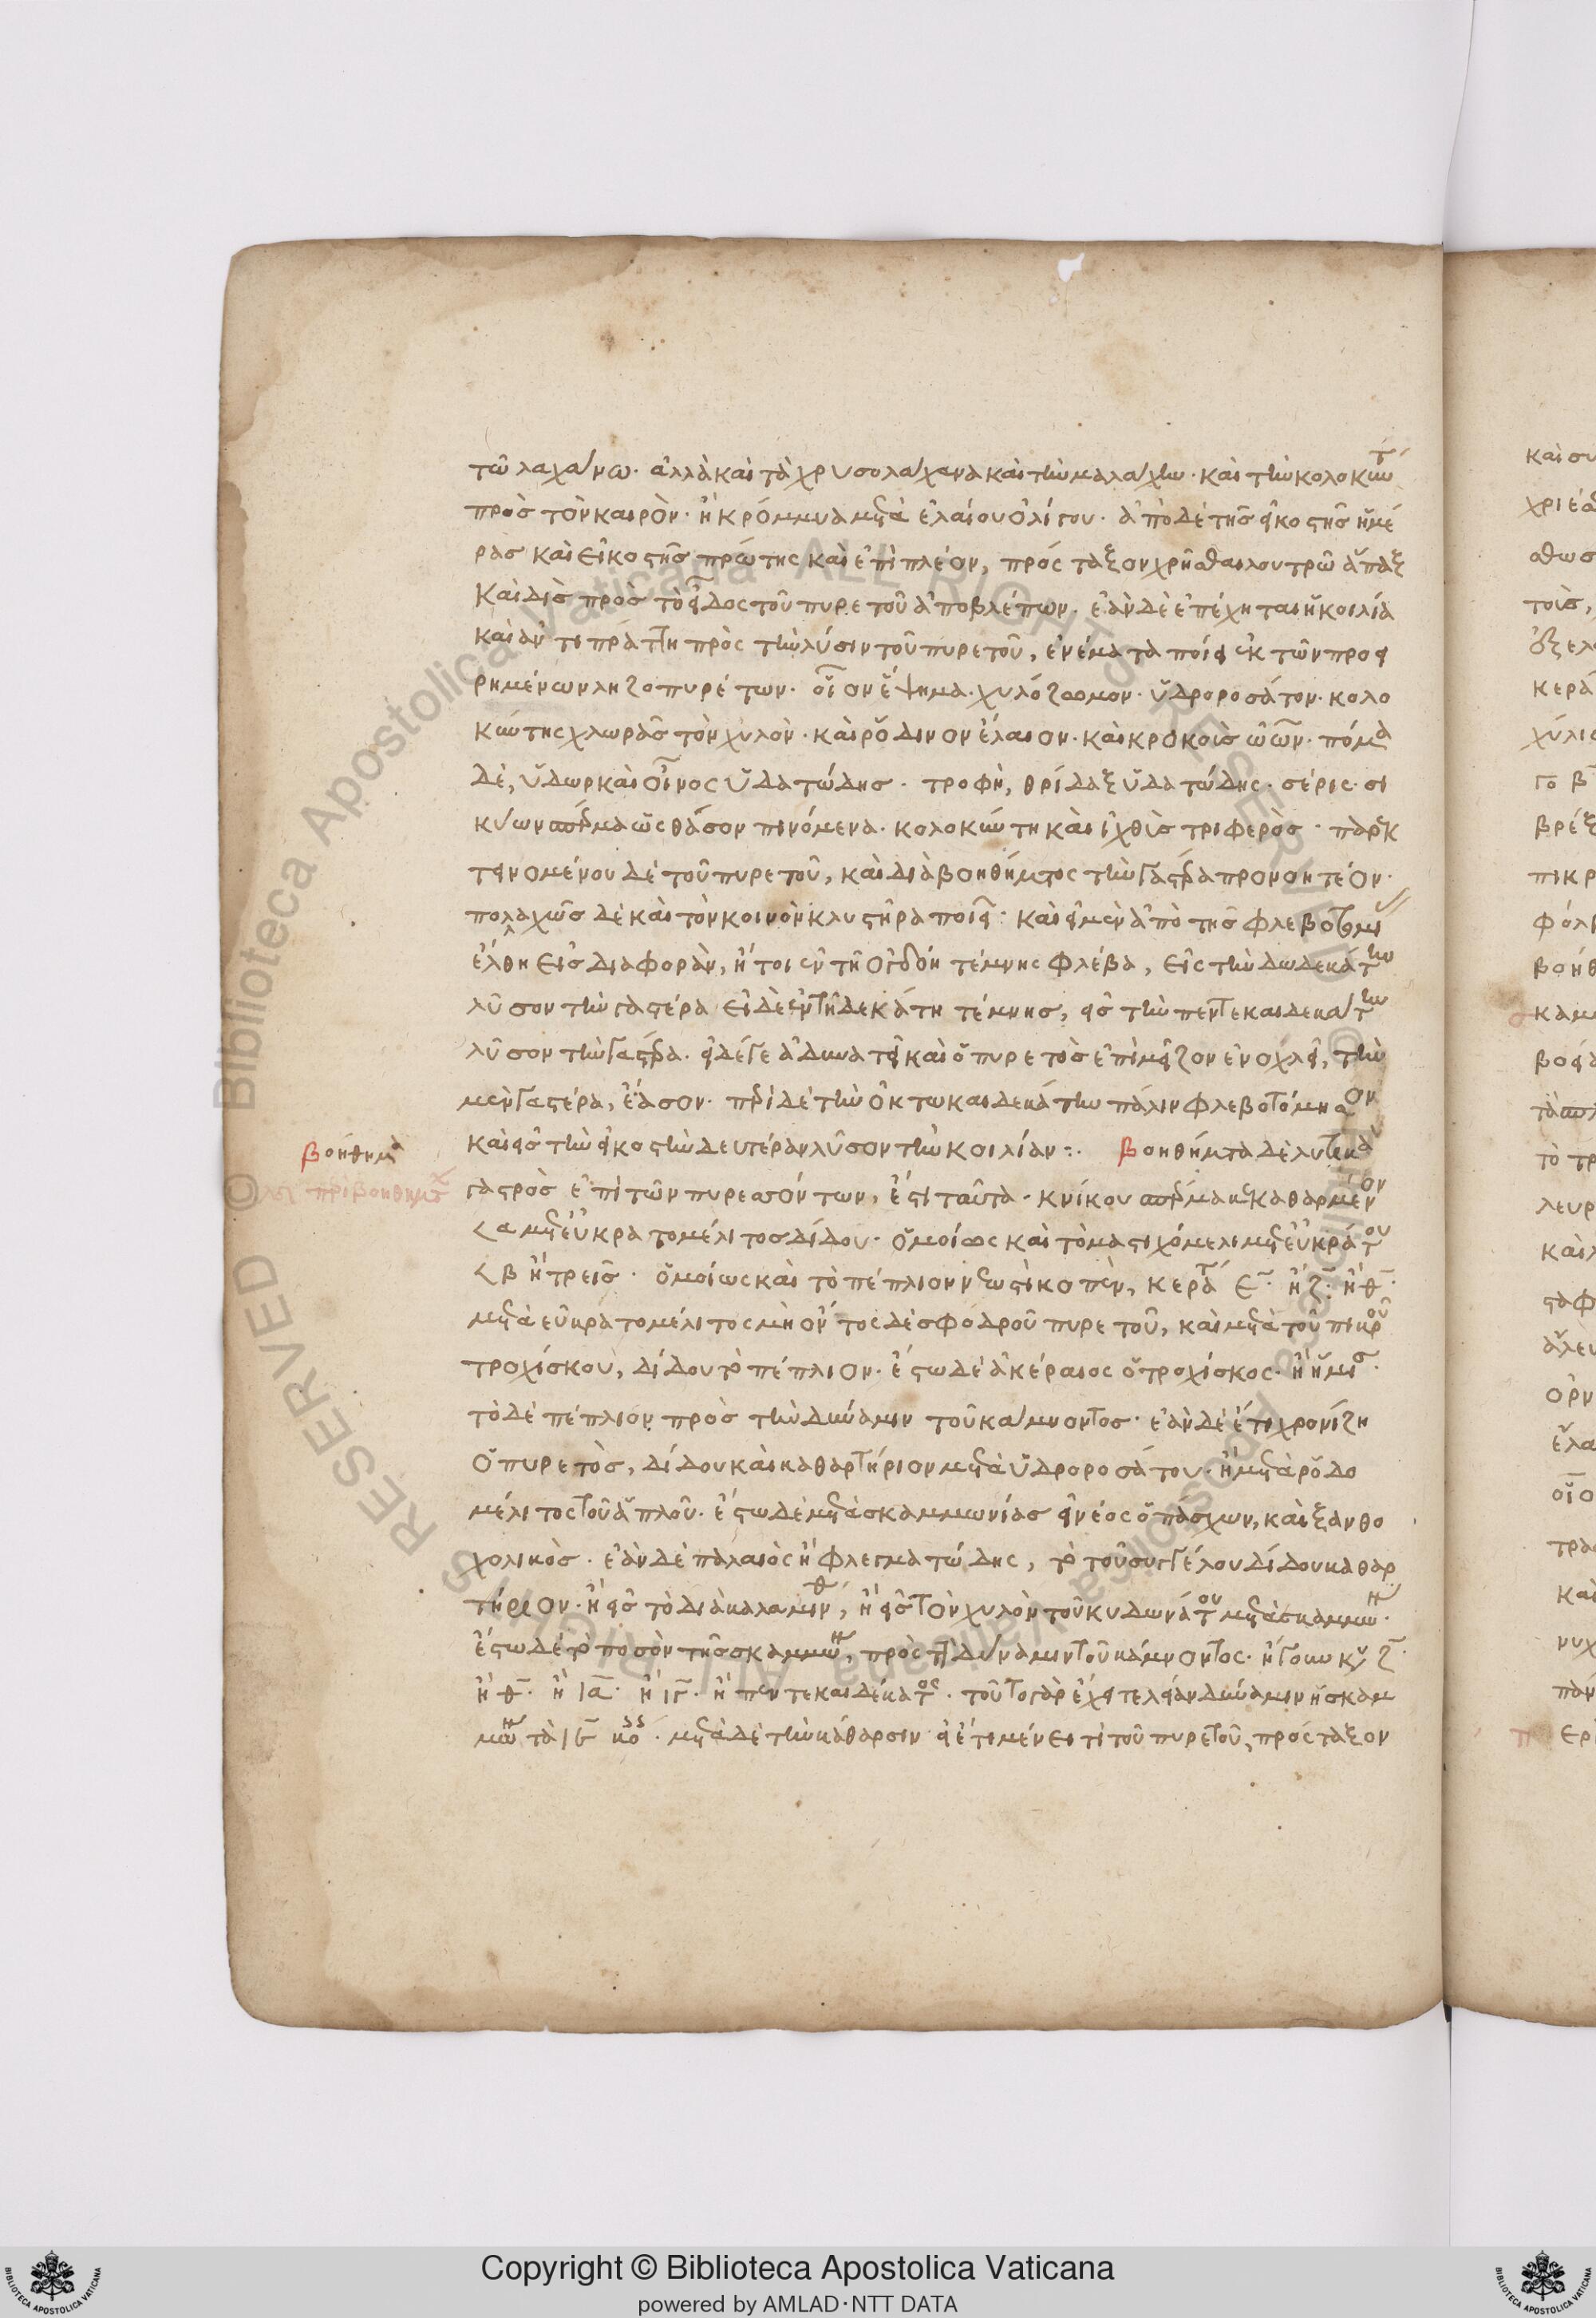 τῶ λαχάνω· ἀλλὰ καὶ τὰ χρυσολάχανα καὶ τὴν μαλάχην· καὶ τὴν κολοκύντ
πρὸς τὸν καιρὸν· ἢ κρόμμυα μετὰ ἐλαίου ὀλίγου· ἀπὸ δὲ τῆς εἰκοστῆς ἡμέ
ρας καὶ εἰκοστῆς πρώτης καὶ ἐπὶ πλέον, πρόσταξον χρῆσθαι λουτρῶ ἅπαξ
καὶ δὶς πρὸς τὸ εἶδος τοῦ πυρετοῦ ἀποβλέπων· ἐὰν δὲ ἐπέχηται ἡ κοιλία
καὶ ἀντιπράττη πρὸς τὴν λύσιν τοῦ πυρετοῦ, ἐνέματα ποίει ἐκ τῶν προει
ρημένων ληξοπυρέτων· οἷον ἕψημα· χυλόζωμον· ὑδροροσάτον· κολο
κύντης χλωρᾶς τὸν χυλὸν· καὶ ῥόδινον ἔλαιον· καὶ κροκοὶς ὠῶν· πόμα
δὲ, ὕδωρ καὶ οἶνος ὑδατώδης· τροφὴ, θρίδαξ ὑδατώδης· σέρις· σι
κύων σπέρμα ὡς θᾶσον πινόμενα· κολοκύντη καὶ ἰχθὺς τριφερὸς· παρεκ
τεινομένου δὲ τοῦ πυρετοῦ, καὶ διὰ βοηθήματος τὴν γαστέρα προνοητέον·
πολλαχῶς δὲ καὶ τὸν κοινὸν κλυστῆρα ποιεῖ· καὶ εἰ μὲν ἀπὸ τῆς φλεβοτομί
ἔλθη εἰς διαφορὰν, ἤτοι ἐν τῆ ὀγδόη τέμνης φλέβα, εἰς τὴν δωδεκάτην
λῦσον τὴν γαστέρα εἰ δὲ ἐν τῆ δεκάτη τέμνης, εἰς τὴν πεντεκαιδεκάτην
λῦσον τὴν γαστέρα· εἰ δέ γε ἀδυνατεῖ καὶ ὁ πυρετὸς ἐπὶ μεῖζον ἐνοχλεῖ, τὴν
μὲν γαστέρα, ἔασον· περὶ δὲ τὴν ὀκτωκαιδεκάτην πάλιν φλεβοτόμησον
καὶ εἰς τὴν εἰκοστὴν δευτέραν λῦσον τὴν κοιλίαν :· βοηθήματα δὲ λυτικὰ
γαστρὸς ἐπὶ τῶν πυρεσσόντων, ἔστι ταῦτα· κνίκου σπέρμα κεκαθαρμένον
< α μετὰ εὐκρατομέλιτος δίδου· ὁμοίως καὶ τὸ μαστιχόμελι μετὰ εὐκράτου
< β ἢ τρεῖς· ὁμοίως καὶ τὸ πέπλιον νεωστὶ κοπὲν, κεράτ ε· ἢ ζ· ἢ θ·
μετὰ εὐκρατομέλιτος μὴ ὄντος δὲ σφοδροῦ πυρετοῦ, καὶ μετὰ τοῦ πικροῦ
τροχίσκου, δίδου τὸ πέπλιον· ἔστω δὲ ἀκέραιος ὁ τροχίσκος· ἢ ἥμισ·
τὸ δὲ πέπλιον πρὸς τὴν δύναμιν τοῦ κάμνοντος· ἐὰν δὲ ἔτι χρονίζη
ὁ πυρετὸς, δίδου καὶ καθαρτήριον μετὰ ὑδροροσάτου· ἢ μετὰ ῥοδο
μέλιτος τοῦ ἁπλοῦ· ἔστω δὲ μετὰ σκαμμωνίας εἰ νέος ὁ πάσχων, καὶ ξανθο
χολικὸς· ἐὰν δὲ παλαιὸς ἢ φλεγματώδης, τὸ τοῦ συγγέλου δίδου καθαρ
τήριον· ἢ εἰς τὸ διὰ καλαμίνθ, ἢ εἰς τὸν χυλὸν τοῦ κυδωνάτου μετὰ σκαμμων·
ἔστω δὲ τὸ ποσὸν τῆς σκαμμων, πρὸς τὴν δύναμιν τοῦ κάμνοντος· ἤγουν κκ ζ·
ἢ θ· ἢ ια· ἢ ιγ· ἢ πεντεκαιδέκατος· τοῦτο γὰρ ἔχει τελείαν δύναμιν ἡ σκαμ
μων τὰ ιε κοκ· μετὰ δὲ τὴν κάθαρσιν εἰ ἔτι μένει τὶ τοῦ πυρετοῦ, πρόσταξον
βοήθημα
περὶ βοηθημάτ